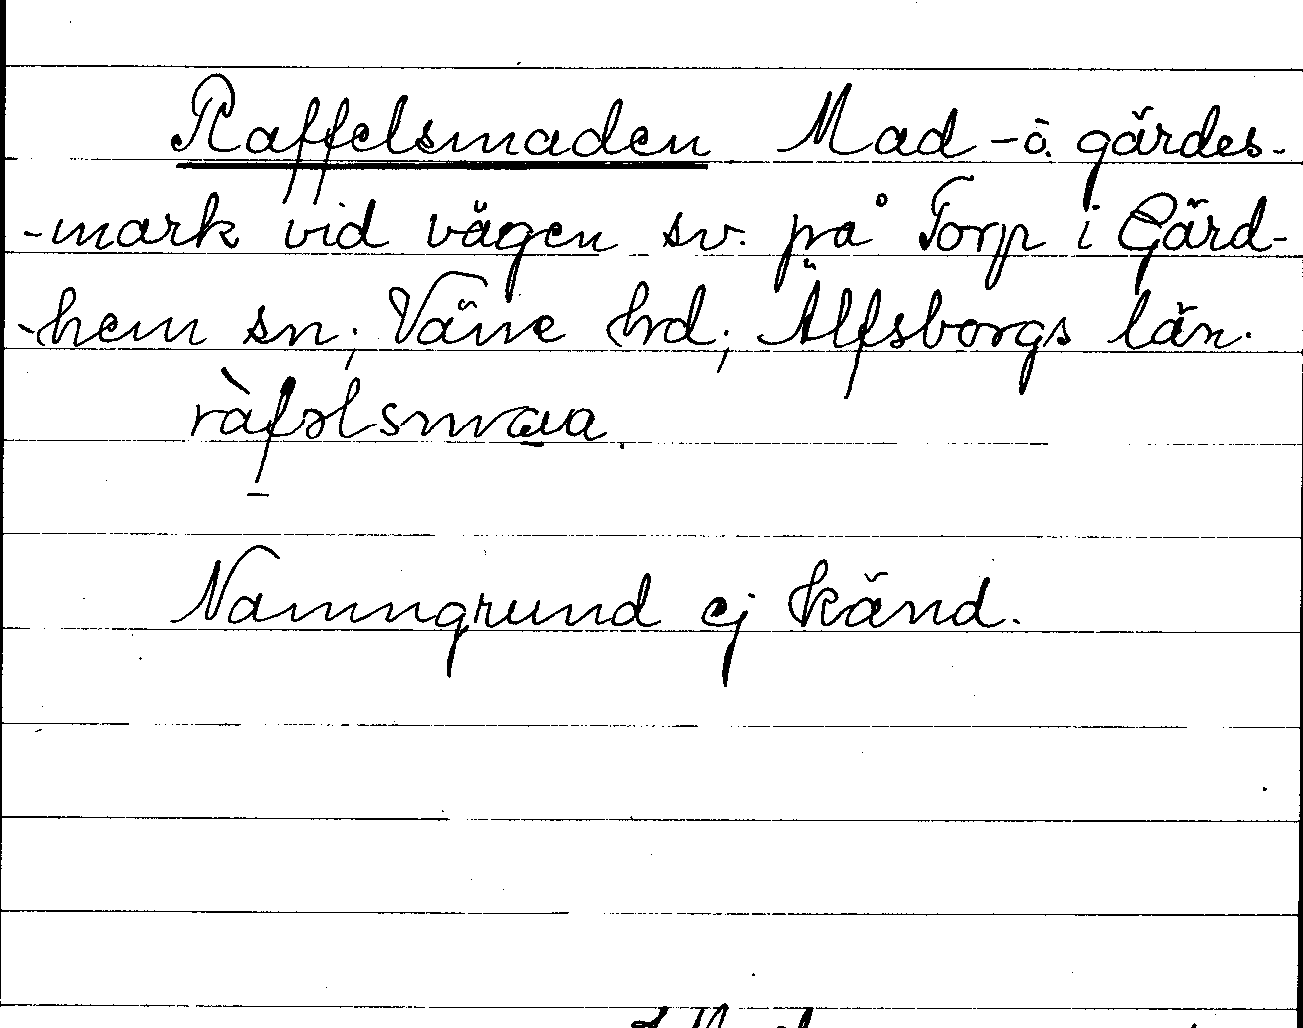 Raffelsmaden Mad - o. gärdes-
-mark vid vägen sv. på Torp i Gärd-
-hem sn; Väne hd; Älfsborgs län.
ràfəlsmaa.
Namngrund ej känd.